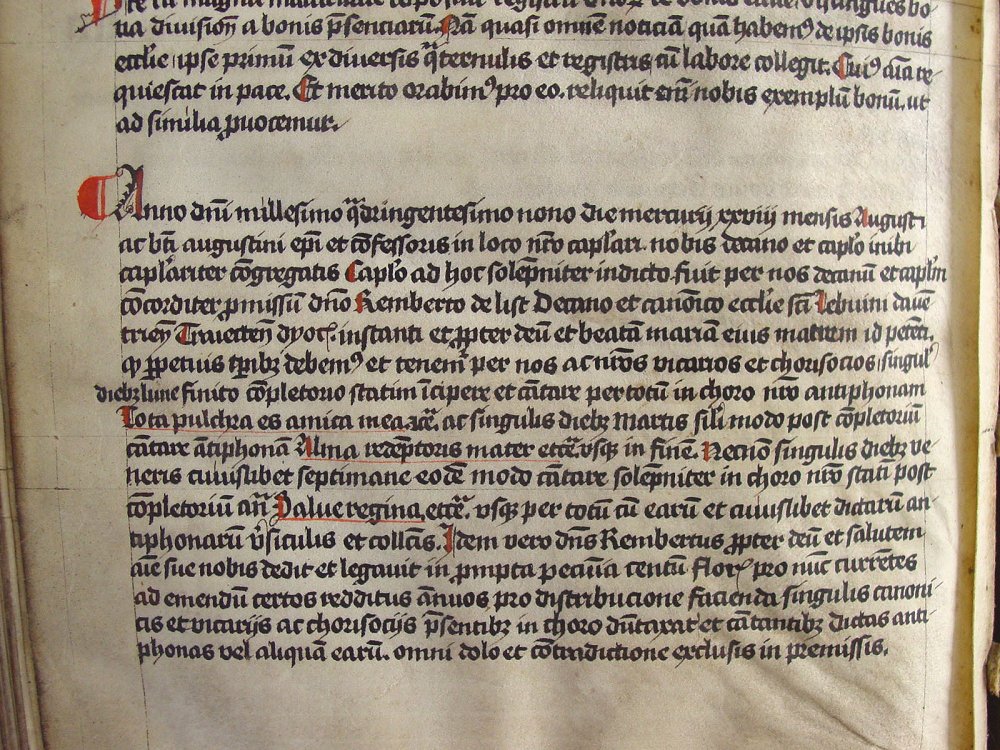 tia division̄ a bonis p̄senciarū. Nā quasi omnem noticiā quā habemꝰ de ipsis bonis
ecclīe ipse primū ex diversis qͣternulis et registris cū labore collegit. Cuiꝰ aīa re
quiescat in pace. Et merito orabimꝰ pro eo. reliquit em̄ nobis exemplū bonū. ut
ad similia ꝓvocemur.
Anno dn̄i millesimo qͣdringentesimo nono die mercurij xxviij mensis Augusti
ac bt̄i augustini ep̄i et cōfessoris in loco nr̄o caplari. nobis decano et caplo inibi
caplariter cōgregatis Caplo ad hoc solēpniter indicto. fuit per nos decanū et caplm
cōcorditer ꝓmissū dn̄o Remberto de list Decano et canōico ecclīe sc̄i Lebuini davē
trieñ Traiecteñ dyoc̄. instanti et ꝓpter deū et beatam mariam eius matrem id petēti.
qꝫ ꝓpetuis tꝑibꝫ debemꝰ et tenemr̄ per nos ac nr̄os vicarios et chorisocios singulꝭ
diebꝫ lune finito cōpletorio statim īcipere et cātare per totū in choro nr̄o antiphonam
Tota pulchra es amica mea. ⁊cē. ac singulis diebꝫ Martis sili modo post cōpletoriū
cātare ātiphonā Alma redēptoris mater etcē. usqꝫ in finē. Necnō singulis diebꝫ ve
neris cuiuslibet septimane eodē modo cātare solēpniter in choro nr̄o stati post
cōpletoriū an̄ Salue regina. etcē. usqꝫ per totū cū earū et cuiuslibet dictarū an
tiphonarū v̄siculis et collc̄is. Idem vero dn̄s Rembertus ꝓpter deū et salutem
aīe sue nobis dedit et legavit in ꝓmpta pecūia centū florꝭ pro nūc currētes
ad emendū certos redditus ānuos pro distribucione facienda singulis canoni
cis et vicarijs ac chorisocijs p̄sentibꝫ in choro dūtaxat et cātantibꝫ dictas anti
phonas vel aliquā earū. omni dolo et cōtradictione exclusis in premissis.